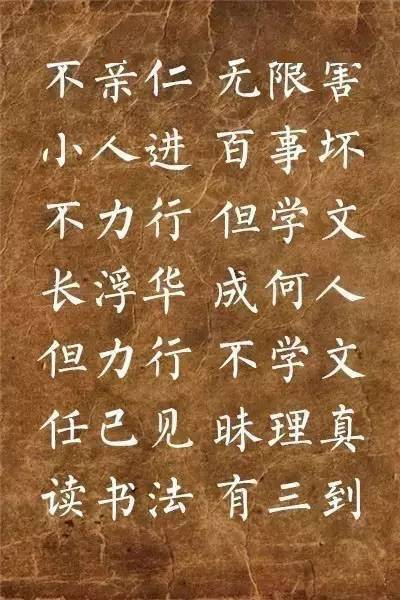 不亲仁 无限害
小人进 百事坏
不力行 但学文
长浮华 成何人
但力行 不学文
任己见 昧理真
读书法 有三到